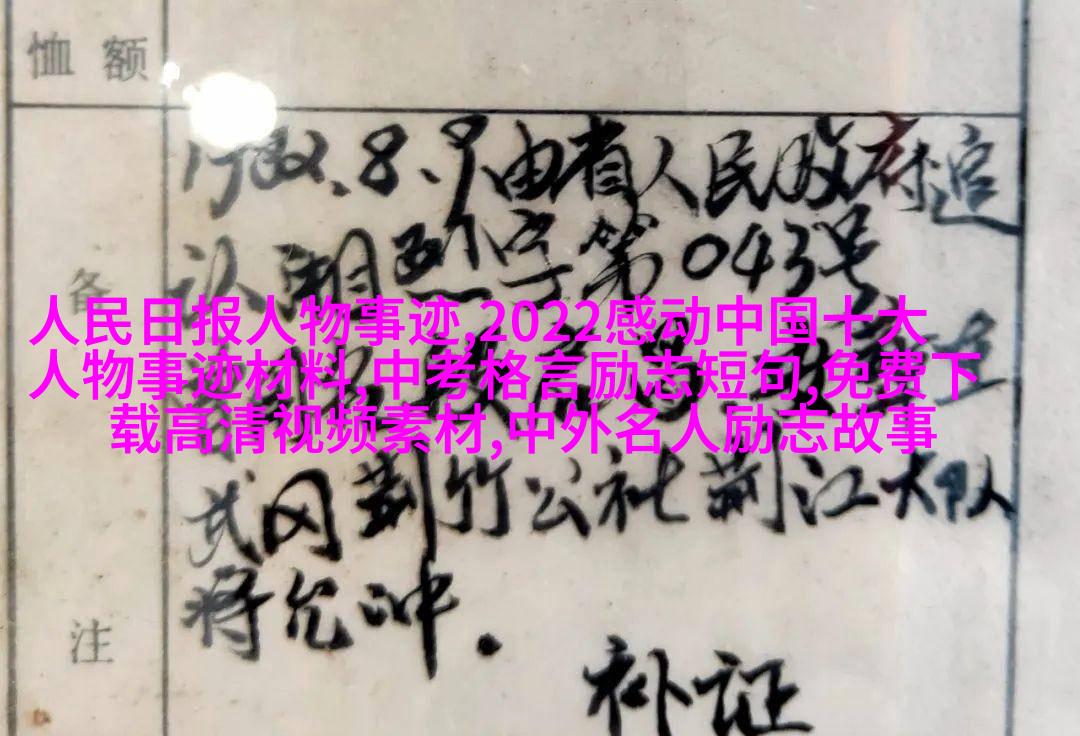 恤额
1982.8.9由省人民政府追
认湘烈字第043号
备
人民日报人物事迹,2022感动中国十大
人物事迹材料,中考格言励志短句,免费下
载高清视频素材,中外名人励志故事
武冈荆竹公社荆江大队
蒋允冲.
注
补证